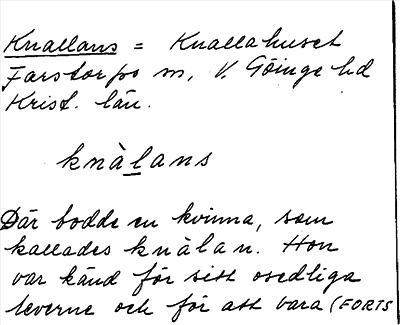 Knallans = Knallahuset
Farstorps sn, V. Göinge hd
Krist. län.
knàlans
Där bodde en kvinna, som
kallades knàlan. Hon
var känd för sitt osedliga
leverne och för att vara (FORTS